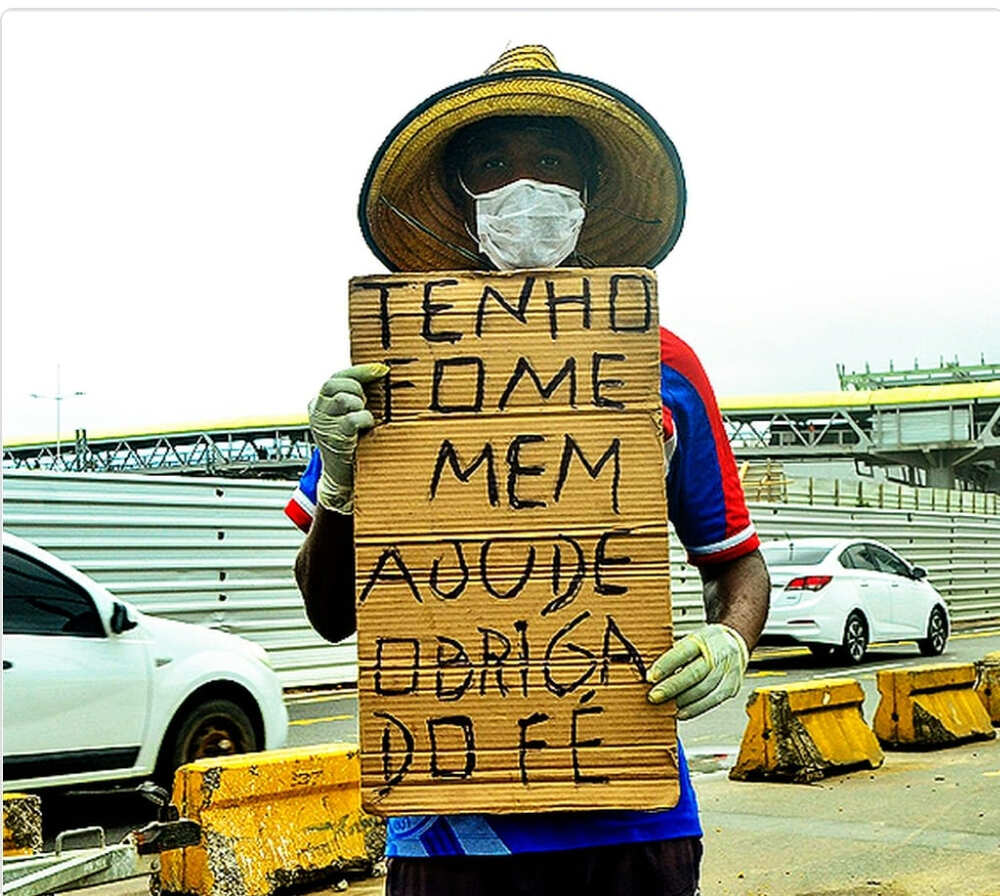 TENHO
FOME
MEM
AJUDE
OBRIGA
DO FÉ